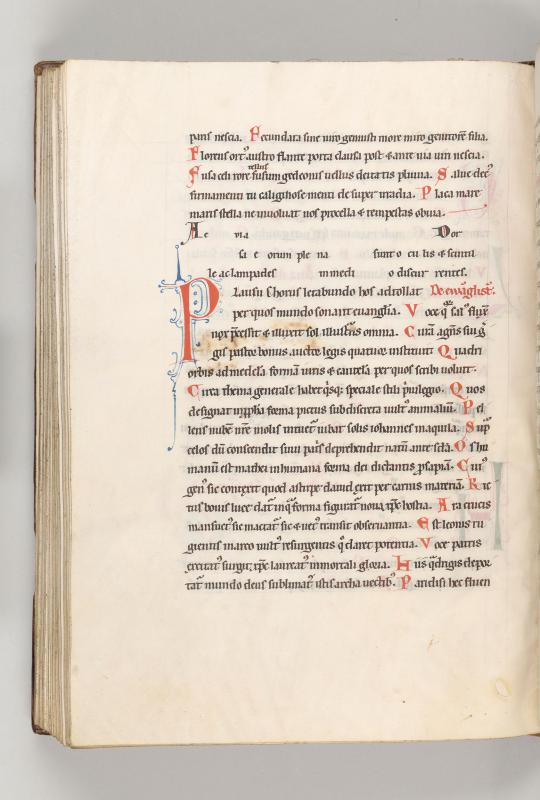 paris nescia. Fecundata sine uiro genuisti more miro genitorē filia.
Florens ort⁹ austro flante porta clausa post & ante uia uiri nescia.
Fusa celi rore tellus fusum gedeonis uellus deitatis pluuia. Salue dec⁹
firmamenti tu caliginose menti desuper irradia. Placa mare
maris stella ne inuoluat uos procella & tempestas obuia.
Ae uia Dor
sa e orum ple na sunt o cu lis & scintil
le ac lampades in medi o discur rentes.
Plausu chorus letabundo hos adtollat De ewāglist⁹.
per quos mundo sonant euanglia. Voce q̄ sal⁹ fluxit
nox p̄cessit & illuxit sol illustrās omnia. Curā agēs sui ḡ
gis pastor bonus auctor legis quatuor instituit Quadri
orbis ad medelā formā iuris & cautelā per quos scribi uoluit.
Circa thema generale habet q̄sq; speciale stili p̄uilegio. Quos
designat in ppha forma pictus sub discreta uult⁹ animaliū. Pel
lens nubē nr̄e molis intuet̄ iubar solis iohannes in aquila. Sup̄
celos dū conscendit sinu pat̄s deprehendit natū ante scl̄a. Os hu
manū est mathei in humana forma dei dictantis p̄sapiā. Cui⁹
gen⁹ sic contexit quod a stirpe dauid exit per carnis materiā. Ric
tus bouis luce dat̄ in q̄ forma figurat̄ noua xp̄c hostia. Ara crucis
mansuet⁹ sic mactat̄ sic & uet⁹ transit obseruantia. Est leonis ru
gientis marco uult⁹ resurgentis q̄ claret potentia. Voce patris
excitat⁹ surgit xp̄c laureat⁹ inmortali gloria. His q̄drigis depor
tat̄ mundo deus sublimat̄ istis archa uectib⁹. Paradisi hec fluen